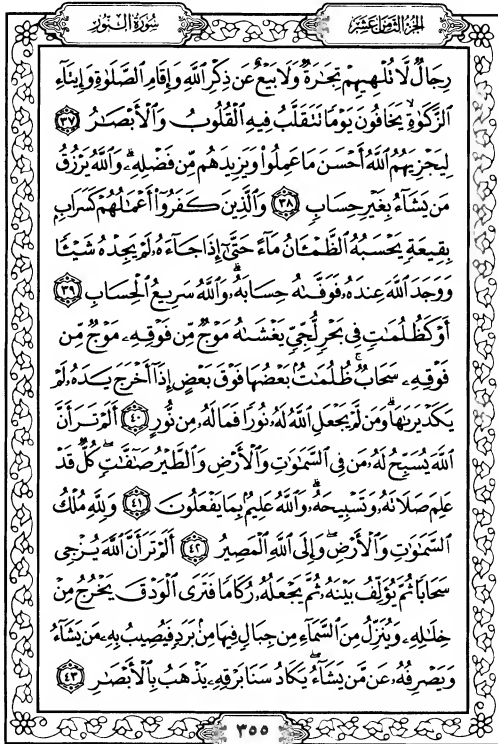 الجزء الثامن عشر
سورة النور
رِجَالٌ لَّا تُلْهِيهِمْ تِجَٰرَةٌ وَلَا بَيْعٌ عَن ذِكْرِ ٱللَّهِ وَإِقَامِ ٱلصَّلَوٰةِ وَإِيتَآءِ
ٱلزَّكَوٰةِ يَخَافُونَ يَوْمًا تَتَقَلَّبُ فِيهِ ٱلْقُلُوبُ وَٱلْأَبْصَٰرُ ٣٧
لِيَجْزِيَهُمُ ٱللَّهُ أَحْسَنَ مَا عَمِلُوا۟ وَيَزِيدَهُم مِّن فَضْلِهِۦ وَٱللَّهُ يَرْزُقُ
مَن يَشَآءُ بِغَيْرِ حِسَابٍ ٣٨ وَٱلَّذِينَ كَفَرُوٓا۟ أَعْمَٰلُهُمْ كَسَرَابٍۭ
بِقِيعَةٍ يَحْسَبُهُ ٱلظَّمْـَٔانُ مَآءً حَتَّىٰٓ إِذَا جَآءَهُۥ لَمْ يَجِدْهُ شَيْـًٔا
وَوَجَدَ ٱللَّهَ عِندَهُۥ فَوَفَّىٰهُ حِسَابَهُۥ ۗ وَٱللَّهُ سَرِيعُ ٱلْحِسَابِ ٣٩
أَوْ كَظُلُمَٰتٍ فِى بَحْرٍ لُّجِّىٍّ يَغْشَىٰهُ مَوْجٌ مِّن فَوْقِهِۦ مَوْجٌ مِّن
فَوْقِهِۦ سَحَابٌ ۚ ظُلُمَٰتٌۢ بَعْضُهَا فَوْقَ بَعْضٍ إِذَآ أَخْرَجَ يَدَهُۥ لَمْ
يَكَدْ يَرَىٰهَا ۗ وَمَن لَّمْ يَجْعَلِ ٱللَّهُ لَهُۥ نُورًا فَمَا لَهُۥ مِن نُّورٍ ٤٠ أَلَمْ تَرَ أَنَّ
ٱللَّهَ يُسَبِّحُ لَهُۥ مَن فِى ٱلسَّمَٰوَٰتِ وَٱلْأَرْضِ وَٱلطَّيْرُ صَٰٓفَّٰتٍ ۖ كُلٌّ قَدْ
عَلِمَ صَلَاتَهُۥ وَتَسْبِيحَهُۥ ۗ وَٱللَّهُ عَلِيمٌۢ بِمَا يَفْعَلُونَ ٤١ وَلِلَّهِ مُلْكُ
ٱلسَّمَٰوَٰتِ وَٱلْأَرْضِ ۖ وَإِلَى ٱللَّهِ ٱلْمَصِيرُ ٤٢ أَلَمْ تَرَ أَنَّ ٱللَّهَ يُزْجِى
سَحَابًا ثُمَّ يُؤَلِّفُ بَيْنَهُۥ ثُمَّ يَجْعَلُهُۥ رُكَامًا فَتَرَى ٱلْوَدْقَ يَخْرُجُ مِنْ
خِلَٰلِهِۦ وَيُنَزِّلُ مِنَ ٱلسَّمَآءِ مِن جِبَالٍ فِيهَا مِنۢ بَرَدٍ فَيُصِيبُ بِهِۦ مَن يَشَآءُ
وَيَصْرِفُهُۥ عَن مَّن يَشَآءُ ۖ يَكَادُ سَنَا بَرْقِهِۦ يَذْهَبُ بِٱلْأَبْصَٰرِ ٤٣
٣٥٥